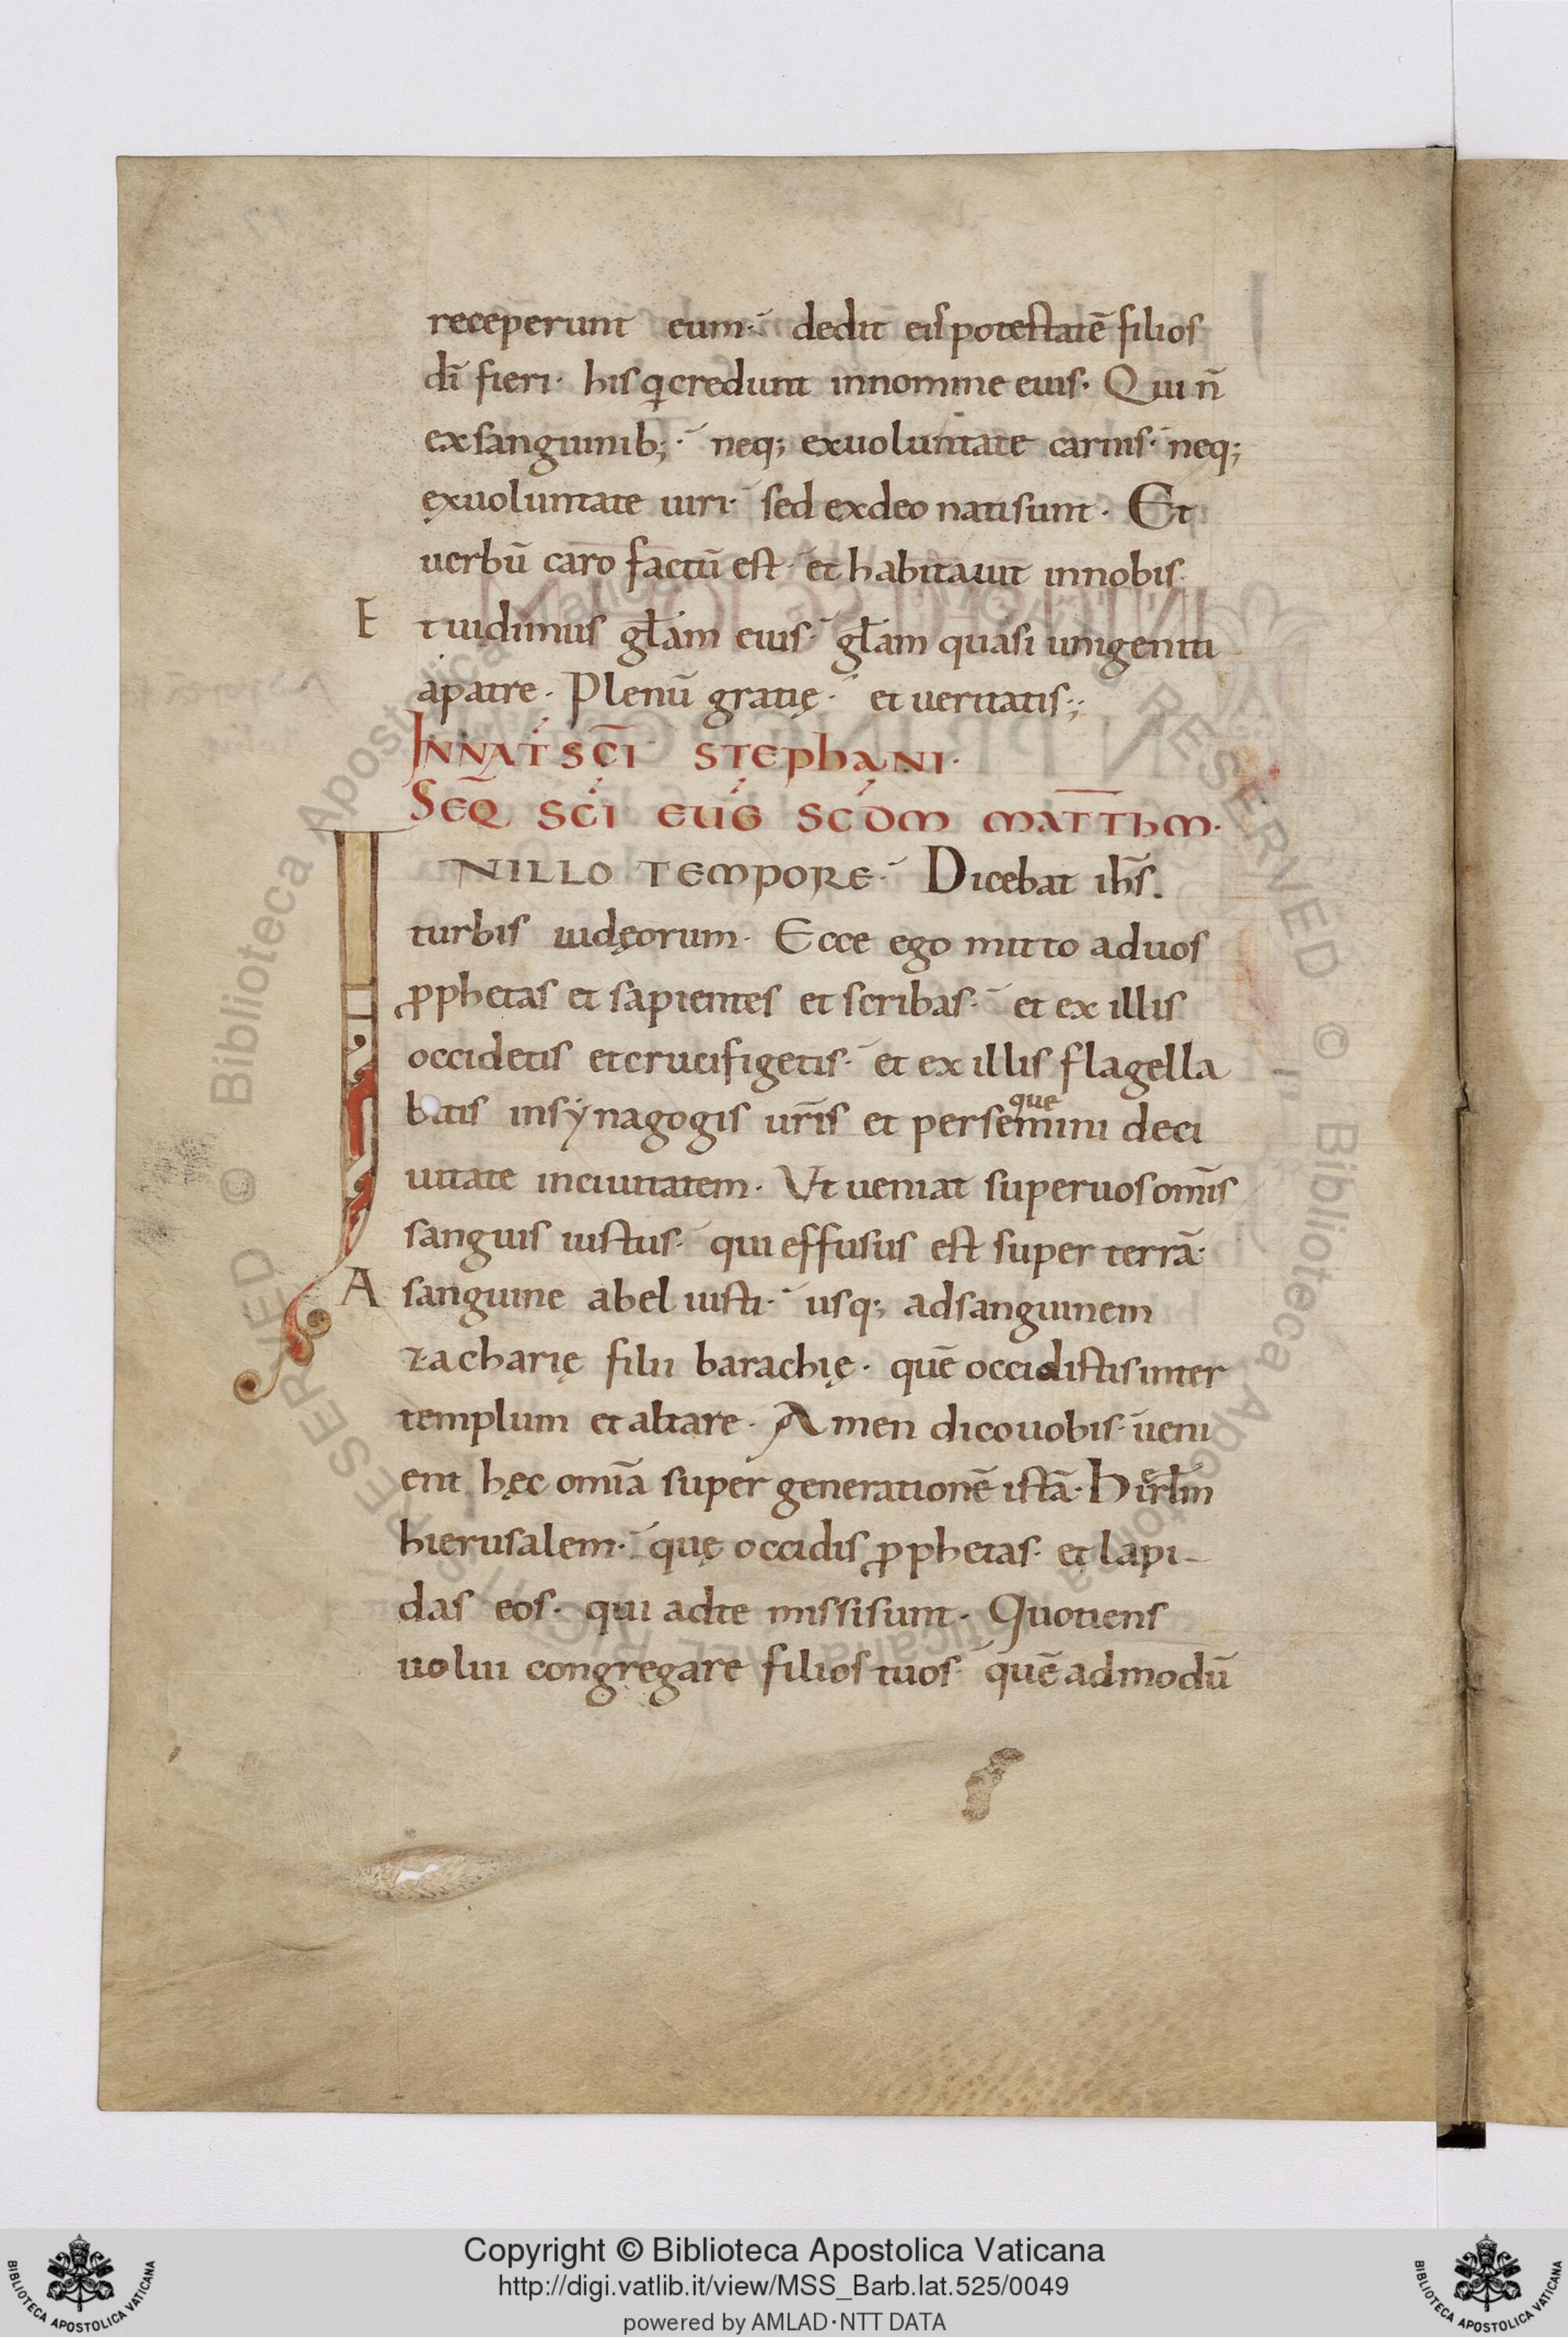 receperunt eum· dedit eis potestatē filios
dī fieri· his qi credunt in nomine eius· Qui n̄
ex sanguinib;· neq; ex uoluntate carnis· neq;
ex uoluntate uiri· sed ex deo nati sunt· Et
uerbū caro factū est· et habitauit in nobis·
Et uidimus gl̄am eius· gl̄am quasi unigeniti
a patre· Plenū gratię· et ueritatis·;
IN NAT̄ SC̄I STEPhANI·
SEQ̄ SC̄I EUḠ SCDM MATThM·
IN ILLO TEMPORE· Dicebat ih̄s.
turbis iudęorum· Ecce ego mitto ad uos
ꝓphetas et sapientes et scribas· et ex illis
occidetis et crucifigetis· et ex illis flagella
bitis in synagogis ur̄is et persequemini de ci
uitate in ciuitatem· Vt ueniat super uos om̄is
sanguis iustus· qui effusus est super terrā·
A sanguine abel iusti· usq; ad sanguinem
zacharię filii barachię· quē occidistis inter
templum et altare· Amen dico uobis· ueni
ent hęc om̄ia super generationē istā· Hierl̄m
hierusalem· quę occidis ꝓphetas· et lapi-
das eos· qui ad te missi sunt· Quotiens
uolui congregare filios tuos· quē admodū
Copyright © Biblioteca Apostolica Vaticana
http://digi.vatlib.it/view/MSS_Barb.lat.525/0049
powered by AMLAD·NTT DATA
BIBLIOTECA APOSTOLICA VATICANA
BIBLIOTECA APOSTOLICA VATICANA